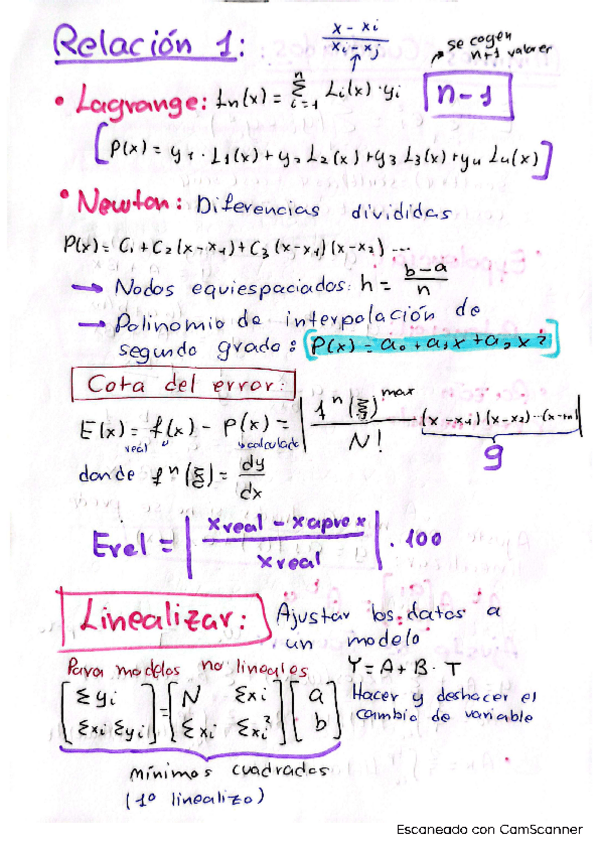 Relación 1:
x - xi / xi - xj
se cogen n+1 valores
• Lagrange: Ln(x) = Σ_{i=1}^{n} Li(x) · yi
n-1
[P(x) = y1 · L1(x) + y2 L2(x) + y3 L3(x) + y4 L4(x)]
• Newton: Diferencias divididas
P(x) = C1 + C2 (x-x1) + C3 (x-x1)(x-x2) ...
→ Nodos equiespaciados: h = b-a / n
→ Polinomio de interpolación de
segundo grado: [P(x) = a0 + a1x + a2x²]
Cota del error:
E(x) = f(x) - P(x) = | f^n(ξ)^max / N! (x-x1)(x-x2)...(x-xn) |
real calculado
g
donde f^n(ξ) = dy/dx
Erel = | xreal - xaprox / xreal | · 100
Linealizar: Ajustar los datos a
un modelo
Para modelos no lineales Y = A + B · T
[Σyi Σxi Σyi] = [N Σxi Σxi Σxi²] [a b]
Hacer y deshacer el
cambio de variable
mínimos cuadrados
(1º linealizo)
Escaneado con CamScanner